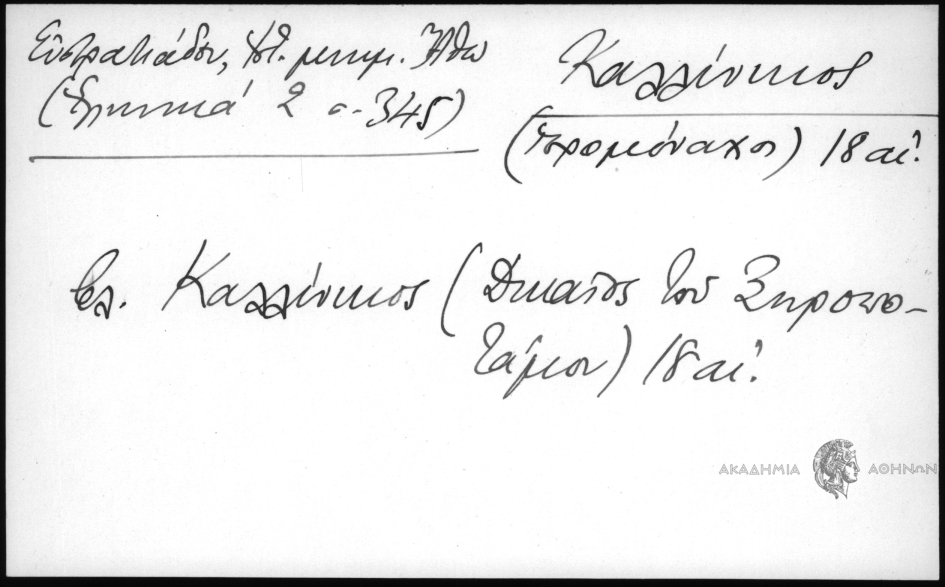 Εὐστρατιάδου, Ἱστ. μνημ. Ἄθω
(Ἑλληνικά 2 σ. 345)
Καλλίνικος
(ἱερομόναχος) 18 αἰ.
βλ. Καλλίνικος (Δικαῖος τοῦ Ξηροπο-
τάμου) 18 αἰ.
ΑΚΑΔΗΜΙΑ ΑΘΗΝΩΝ